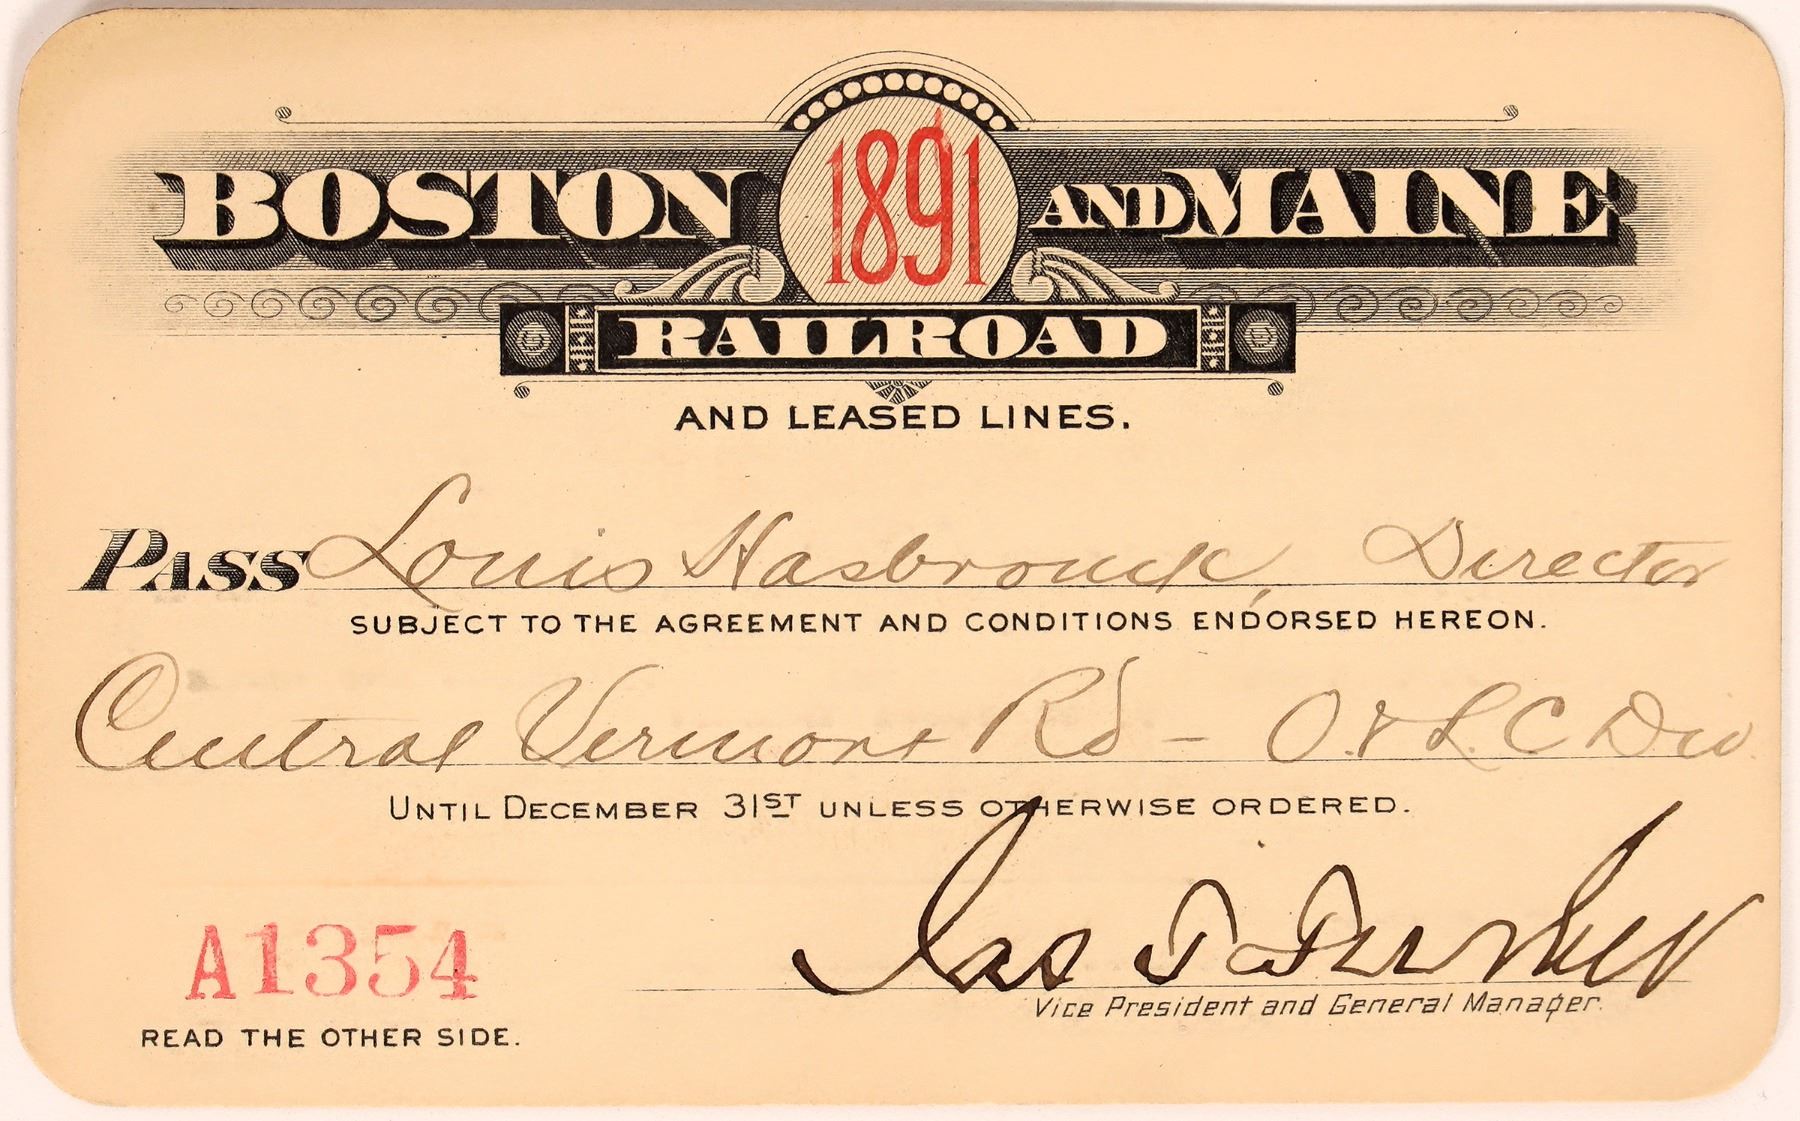 BOSTON 1891 AND MAINE
RAILROAD
AND LEASED LINES.
PASS Louis Hasbrouck, Director
SUBJECT TO THE AGREEMENT AND CONDITIONS ENDORSED HEREON.
Central Vermont Rd - O. & L. C Div.
UNTIL DECEMBER 31ST UNLESS OTHERWISE ORDERED.
Jas T Furber
A1354
Vice President and General Manager.
READ THE OTHER SIDE.